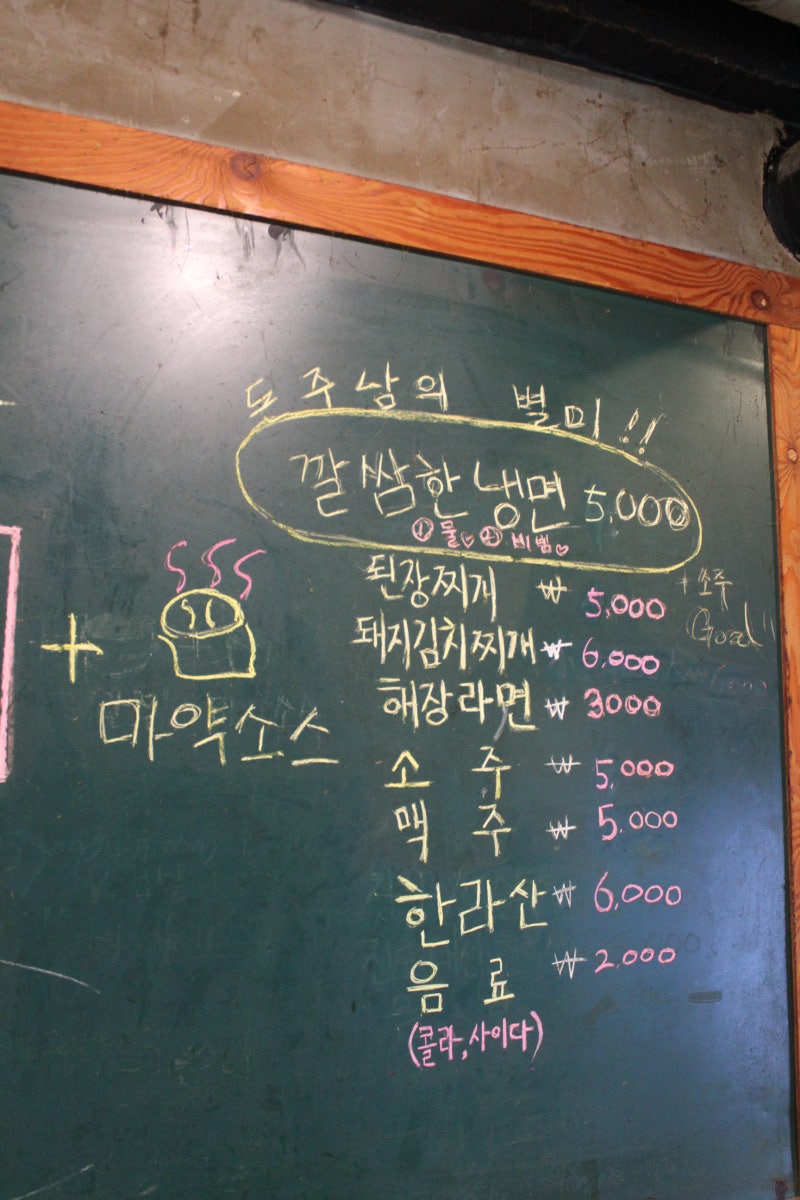 돈주남의 별미!!
깔쌈한냉면 5,000
① 물♡ ② 비빔♡
된장찌개 ₩ 5,000
+ 소주
Good"
돼지김치찌개 ₩ 6,000
해장라면 ₩ 3000
소 주 ₩ 5,000
맥 주 ₩ 5.000
한라산 ₩ 6,000
음 료 ₩ 2.000
(콜라, 사이다)
+
마약소스